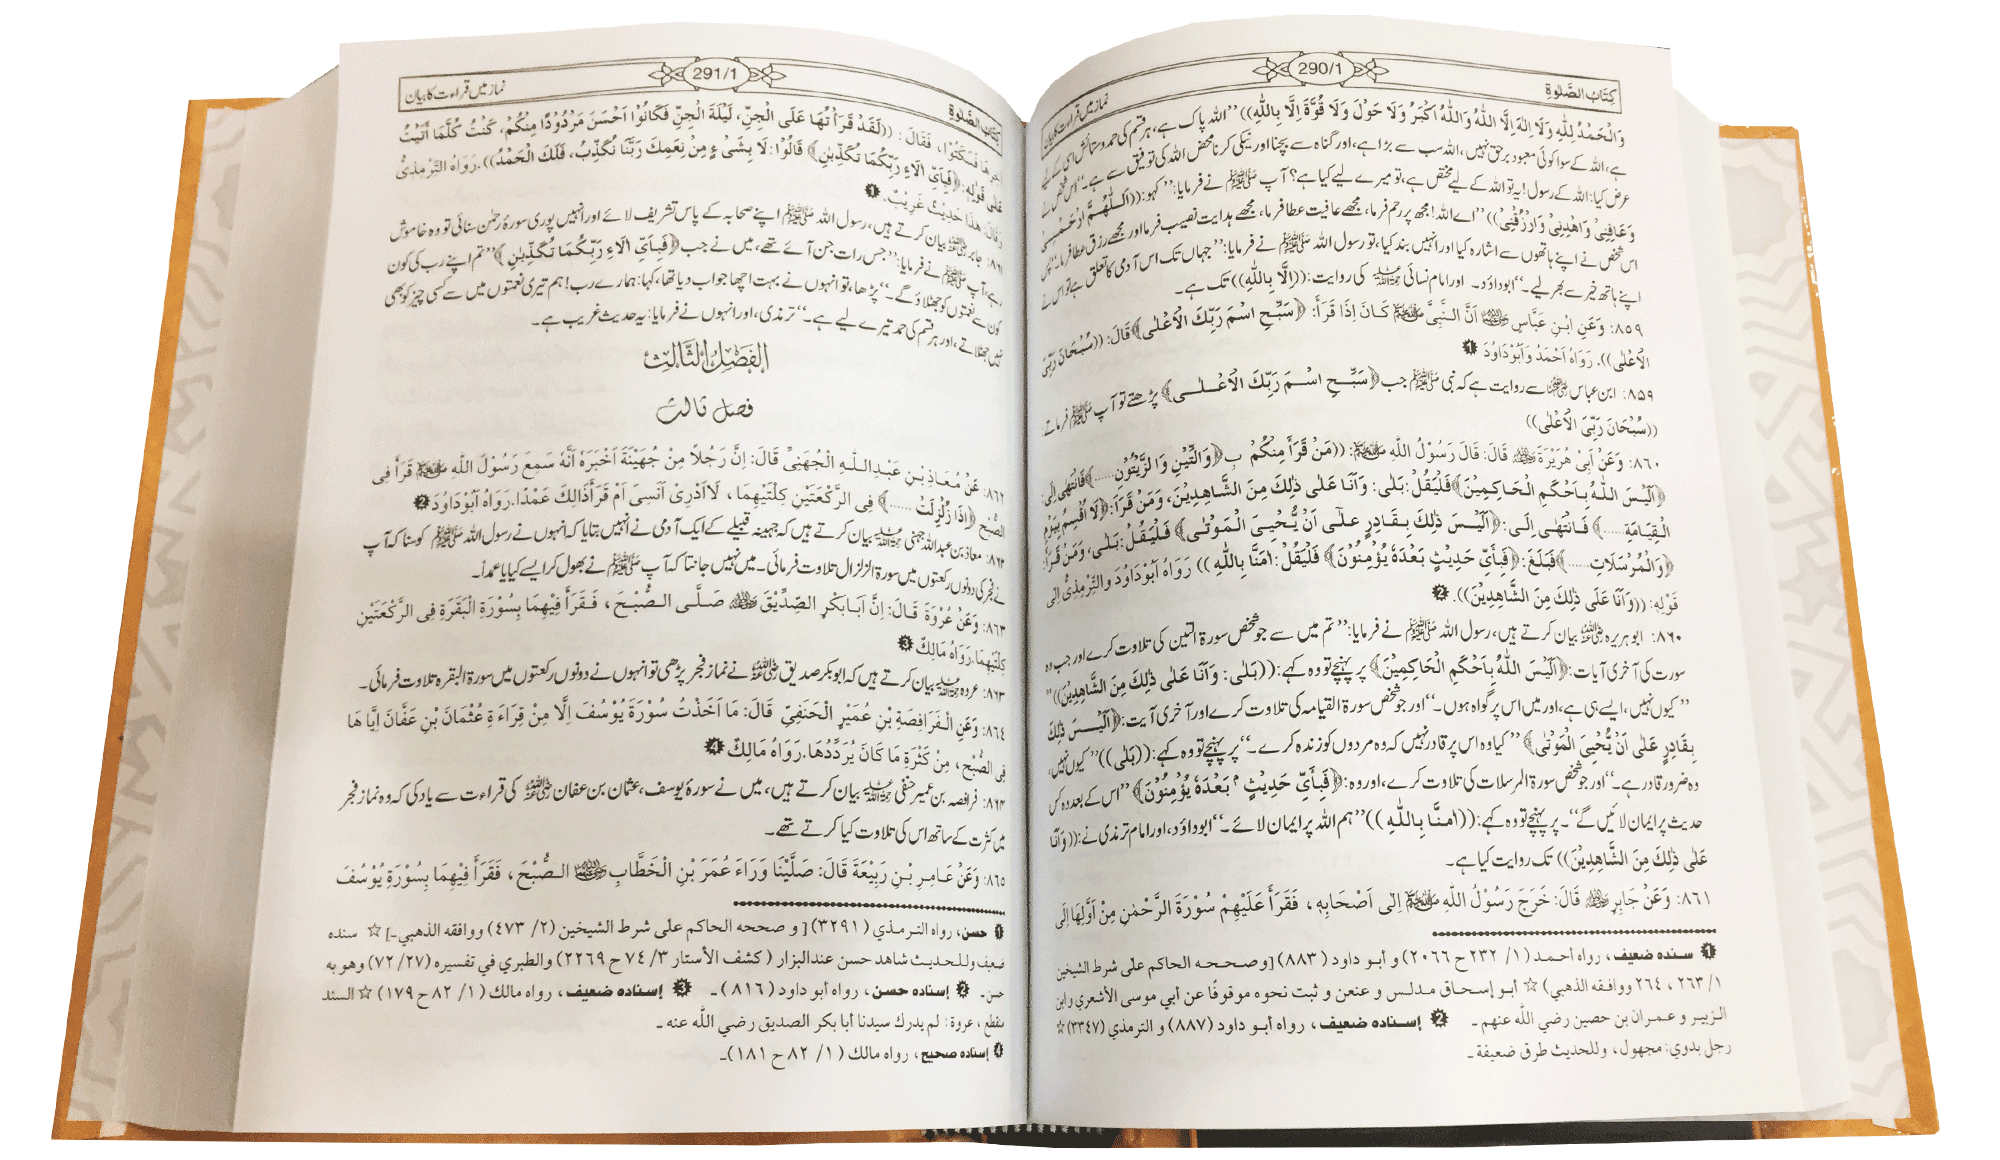 كِتَابُ الصَّلٰوةِ 290/1 نماز میں قراءت کا بیان
وَالْحَمْدُ لِلّٰهِ وَلَا اِلٰهَ اِلَّا اللّٰهُ وَاللّٰهُ اَكْبَرُ وَلَا حَوْلَ وَلَا قُوَّةَ اِلَّا بِاللّٰهِ)) ’’اللہ پاک ہے، ہر قسم کی حمد و ستائش اسی کے لیے
ہے، اللہ کے سوا کوئی معبود برحق نہیں، اللہ سب سے بڑا ہے، اور گناہ سے بچنا اور نیکی کرنا محض اللہ کی توفیق سے ہے۔‘‘ اس شخص نے
عرض کیا: اللہ کے رسول! یہ تو اللہ کے لیے مختص ہے، تو میرے لیے کیا ہے؟ آپ ﷺ نے فرمایا: ’’کہو: ((اَللّٰهُمَّ ارْحَمْنِيْ
وَعَافِنِيْ وَاهْدِنِيْ وَارْزُقْنِيْ)) ’’اے اللہ! مجھ پر رحم فرما، مجھے عافیت عطا فرما، مجھے ہدایت نصیب فرما اور مجھے رزق عطا فرما۔‘‘ پس
اس شخص نے اپنے ہاتھوں سے اشارہ کیا اور انہیں بند کیا، تو رسول اللہ ﷺ نے فرمایا: ’’جہاں تک اس آدمی کا تعلق ہے تو اس نے
اپنے ہاتھ خیر سے بھر لیے۔‘‘ ابوداؤد۔ اور امام نسائی رحمہ اللہ کی روایت: ((اِلَّا بِاللّٰهِ)) تک ہے۔
٨٥٩: وَعَنِ ابْنِ عَبَّاسٍ رضی اللہ عنہما اَنَّ النَّبِيَّ ﷺ كَانَ اِذَا قَرَأَ: ﴿سَبِّحِ اسْمَ رَبِّكَ الْاَعْلٰى﴾ قَالَ: ((سُبْحَانَ رَبِّيَ
الْاَعْلٰى)). رَوَاهُ اَحْمَدُ وَاَبُوْدَاوٗدَ ❶
٨٥٩: ابن عباس رضی اللہ عنہما سے روایت ہے کہ نبی ﷺ جب ﴿سَبِّحِ اسْمَ رَبِّكَ الْاَعْلٰى﴾ پڑھتے تو آپ ﷺ فرماتے:
((سُبْحَانَ رَبِّيَ الْاَعْلٰى))
٨٦٠: وَعَنْ اَبِيْ هُرَيْرَةَ رضی اللہ عنہ قَالَ: قَالَ رَسُوْلُ اللّٰهِ ﷺ: ((مَنْ قَرَأَ مِنْكُمْ بِ ﴿وَالتِّيْنِ وَالزَّيْتُوْنِ......﴾ فَانْتَهٰى اِلٰى:
﴿اَلَيْسَ اللّٰهُ بِاَحْكَمِ الْحَاكِمِيْنَ﴾ فَلْيَقُلْ: بَلٰى: وَاَنَا عَلٰى ذٰلِكَ مِنَ الشَّاهِدِيْنَ، وَمَنْ قَرَأَ: ﴿لَا اُقْسِمُ بِيَوْمِ
الْقِيَامَةِ.....﴾ فَانْتَهٰى اِلٰى: ﴿اَلَيْسَ ذٰلِكَ بِقَادِرٍ عَلٰى اَنْ يُّحْيِيَ الْمَوْتٰى﴾ فَلْيَقُلْ: بَلٰى، وَمَنْ قَرَأَ:
﴿وَالْمُرْسَلَاتِ......﴾ فَبَلَغَ: ﴿فَبِاَيِّ حَدِيْثٍ بَعْدَهٗ يُؤْمِنُوْنَ﴾ فَلْيَقُلْ: اٰمَنَّا بِاللّٰهِ)) رَوَاهُ اَبُوْدَاوٗدَ وَالتِّرْمِذِيُّ اِلٰى
قَوْلِهٖ: ((وَاَنَا عَلٰى ذٰلِكَ مِنَ الشَّاهِدِيْنَ)). ❷
٨٦٠: ابو ہریرہ رضی اللہ عنہ بیان کرتے ہیں، رسول اللہ ﷺ نے فرمایا: ’’تم میں سے جو شخص سورۃ التین کی تلاوت کرے اور جب وہ
سورت کی آخری آیات: ﴿اَلَيْسَ اللّٰهُ بِاَحْكَمِ الْحَاكِمِيْنَ﴾ پر پہنچے تو وہ کہے: ((بَلٰى: وَاَنَا عَلٰى ذٰلِكَ مِنَ الشَّاهِدِيْنَ))
’’کیوں نہیں، ایسے ہی ہے، اور میں اس پر گواہ ہوں۔‘‘ اور جو شخص سورۃ القیامہ کی تلاوت کرے اور آخری آیت: ﴿اَلَيْسَ ذٰلِكَ
بِقَادِرٍ عَلٰى اَنْ يُّحْيِيَ الْمَوْتٰى﴾ ’’کیا وہ اس پر قادر نہیں کہ وہ مردوں کو زندہ کرے۔‘‘ پر پہنچے تو وہ کہے: ((بَلٰى)) ’’کیوں نہیں،
وہ ضرور قادر ہے۔‘‘ اور جو شخص سورۃ المرسلات کی تلاوت کرے، اور وہ: ﴿فَبِاَيِّ حَدِيْثٍ ۢ بَعْدَهٗ يُؤْمِنُوْنَ﴾ ’’اس کے بعد وہ کس
حدیث پر ایمان لائیں گے‘‘۔ پر پہنچے تو وہ کہے: ((اٰمَنَّا بِاللّٰهِ)) ’’ہم اللہ پر ایمان لائے۔‘‘ ابوداؤد، اور امام ترمذی نے: ((وَاَنَا
عَلٰى ذٰلِكَ مِنَ الشَّاهِدِيْنَ)) تک روایت کیا ہے۔
٨٦١: وَعَنْ جَابِرٍ رضی اللہ عنہ قَالَ: خَرَجَ رَسُوْلُ اللّٰهِ ﷺ اِلٰى اَصْحَابِهٖ، فَقَرَأَ عَلَيْهِمْ سُوْرَةَ الرَّحْمٰنِ مِنْ اَوَّلِهَا اِلٰى
❶ سنده ضعيف، رواه أحمد (١/ ٢٣٢ ح ٢٠٦٦) و أبو داود (٨٨٣) [و صححه الحاكم على شرط الشيخين
١/ ٢٦٣، ٢٦٤ ووافقه الذهبي) ☆ أبو إسحاق مدلس و عنعن و ثبت نحوه موقوفًا عن أبي موسى الأشعري و ابن
الزبير و عمران بن حصين رضي الله عنهم ـ ❷ إسناده ضعيف، رواه أبو داود (٨٨٧) و الترمذي (٣٣٤٧) ☆
رجل بدوي: مجهول، وللحديث طرق ضعيفة ـ
كِتَابُ الصَّلٰوةِ 291/1 نماز میں قراءت کا بیان
اٰخِرِهَا فَسَكَتُوْا، فَقَالَ: ((لَقَدْ قَرَأْتُهَا عَلَى الْجِنِّ، لَيْلَةَ الْجِنِّ فَكَانُوْا اَحْسَنَ مَرْدُوْدًا مِنْكُمْ، كُنْتُ كُلَّمَا اَتَيْتُ
عَلٰى قَوْلِهٖ: ﴿فَبِاَيِّ اٰلَاءِ رَبِّكُمَا تُكَذِّبٰنِ﴾ قَالُوْا: لَا بِشَيْءٍ مِنْ نِعَمِكَ رَبَّنَا نُكَذِّبُ، فَلَكَ الْحَمْدُ)). رَوَاهُ التِّرْمِذِيُّ
وَقَالَ: هٰذَا حَدِيْثٌ غَرِيْبٌ. ❶
٨٦١: جابر رضی اللہ عنہ بیان کرتے ہیں، رسول اللہ ﷺ اپنے صحابہ کے پاس تشریف لائے اور انہیں پوری سورۂ رحمٰن سنائی تو وہ خاموش
رہے، آپ ﷺ نے فرمایا: ’’جس رات جن آئے تھے، میں نے جب ﴿فَبِاَيِّ اٰلَاءِ رَبِّكُمَا تُكَذِّبٰنِ﴾ ’’تم اپنے رب کی کون
کون سے نعمتوں کو جھٹلاؤ گے۔‘‘ پڑھا، تو انہوں نے بہت اچھا جواب دیا تھا، کہا: ہمارے رب! ہم تیری نعمتوں میں سے کسی چیز کو بھی
نہیں جھٹلاتے، اور ہر قسم کی حمد تیرے لیے ہے۔‘‘ ترمذی، اور انہوں نے فرمایا: یہ حدیث غریب ہے۔
الفَصْلُ الثَّالِث
فصل ثالث
٨٦٢: عَنْ مُعَاذِ بْنِ عَبْدِاللّٰهِ الْجُهَنِيِّ قَالَ: اِنَّ رَجُلًا مِنْ جُهَيْنَةَ اَخْبَرَهٗ اَنَّهٗ سَمِعَ رَسُوْلَ اللّٰهِ ﷺ قَرَأَ فِي
الصُّبْحِ ﴿اِذَا زُلْزِلَتْ......﴾ فِي الرَّكْعَتَيْنِ كِلْتَيْهِمَا، لَا اَدْرِيْ اَنَسِيَ اَمْ قَرَأَ ذَالِكَ عَمْدًا. رَوَاهُ اَبُوْدَاوٗدَ ❷
٨٦٢: معاذ بن عبداللہ جہنی رحمہ اللہ بیان کرتے ہیں کہ جہینہ قبیلے کے ایک آدمی نے انہیں بتایا کہ انہوں نے رسول اللہ ﷺ کو سنا کہ آپ
نے فجر کی دونوں رکعتوں میں سورۃ الزلزال تلاوت فرمائی۔ میں نہیں جانتا کہ آپ ﷺ نے بھول کر ایسے کیا یا عمداً۔
٨٦٣: وَعَنْ عُرْوَةَ قَالَ: اِنَّ اَبَابَكْرِ الصِّدِّيْقَ رضی اللہ عنہ صَلَّى الصُّبْحَ، فَقَرَأَ فِيْهِمَا بِسُوْرَةِ الْبَقَرَةِ فِي الرَّكْعَتَيْنِ
كِلْتَيْهِمَا. رَوَاهُ مَالِكٌ ❸
٨٦٣: عروہ رحمہ اللہ بیان کرتے ہیں کہ ابوبکر صدیق رضی اللہ عنہ نے نماز فجر پڑھی تو انہوں نے دونوں رکعتوں میں سورۃ البقرہ تلاوت فرمائی۔
٨٦٤: وَعَنِ الْفَرَافِصَةِ بْنِ عُمَيْرٍ الْحَنَفِيِّ قَالَ: مَا اَخَذْتُ سُوْرَةَ يُوْسُفَ اِلَّا مِنْ قِرَاءَةِ عُثْمَانَ بْنِ عَفَّانَ اِيَّاهَا
فِي الصُّبْحِ، مِنْ كَثْرَةِ مَا كَانَ يُرَدِّدُهَا. رَوَاهُ مَالِكٌ ❹
٨٦٤: فرافصہ بن عمیر حنفی رحمہ اللہ بیان کرتے ہیں، میں نے سورۂ یوسف، عثمان بن عفان رضی اللہ عنہ کی قراءت سے یاد کی کہ وہ نماز فجر
میں کثرت کے ساتھ اس کی تلاوت کیا کرتے تھے۔
٨٦٥: وَعَنْ عَامِرِ بْنِ رَبِيْعَةَ قَالَ: صَلَّيْنَا وَرَاءَ عُمَرَ بْنِ الْخَطَّابِ رضی اللہ عنہ الصُّبْحَ، فَقَرَأَ فِيْهِمَا بِسُوْرَةِ يُوْسُفَ
❶ حسن، رواه الترمذي (٣٢٩١) [و صححه الحاكم على شرط الشيخين (٢/ ٤٧٣) ووافقه الذهبي۔] ☆ سنده
ضعيف وللحديث شاهد حسن عندالبزار (كشف الأستار ٣/ ٧٤ ح ٢٢٦٩) والطبري في تفسيره (٢٧/ ٧٢) وهو به
حسن۔ ❷ إسناده حسن، رواه أبو داود (٨١٦)۔ ❸ إسناده ضعيف، رواه مالك (١/ ٨٢ ح ١٧٩) ☆ السند
منقطع، عروة: لم يدرك سيدنا أبا بكر الصديق رضي الله عنه ـ
❹ إسناده صحيح، رواه مالك (١/ ٨٢ ح ١٨١)ـ